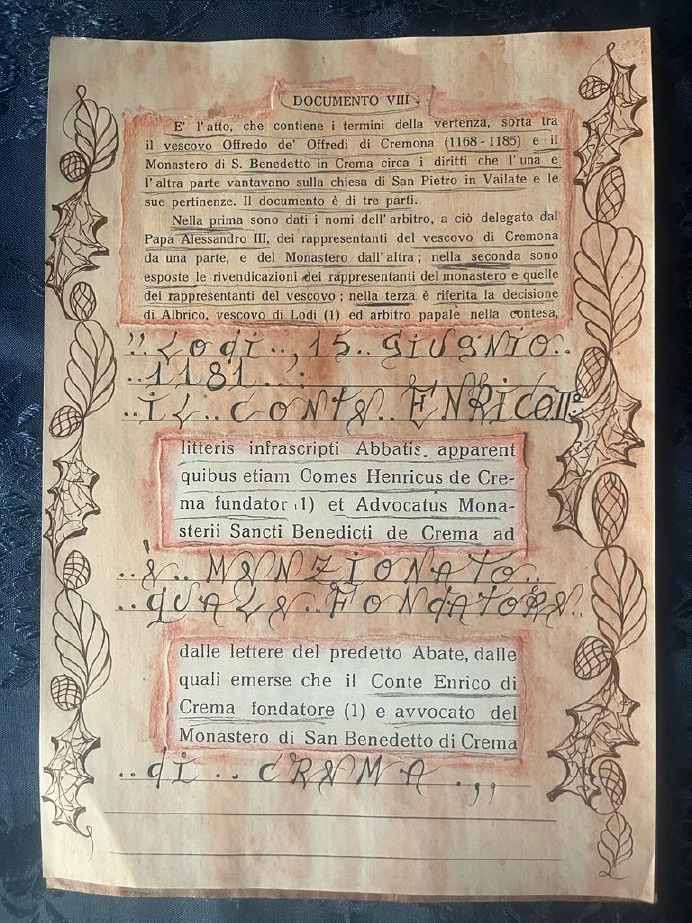 DOCUMENTO VIII
E' l'atto, che contiene i termini della vertenza, sorta tra
il vescovo Offredo de' Offredi di Cremona (1168-1185) e il
Monastero di S. Benedetto in Crema circa i diritti che l'una e
l'altra parte vantavano sulla chiesa di San Pietro in Vailate e le
sue pertinenze. Il documento è di tre parti.
Nella prima sono dati i nomi dell'arbitro, a ciò delegato dal
Papa Alessandro III, dei rappresentanti del vescovo di Cremona
da una parte, e del Monastero dall'altra; nella seconda sono
esposte le rivendicazioni dei rappresentanti del monastero e quelle
dei rappresentanti del vescovo; nella terza è riferita la decisione
di Albrico, vescovo di Lodi (1) ed arbitro papale nella contesa,
"..Lodi..,15..GIUGNIO..
..1181..:
..IL..CONTE..ENRICO II°
litteris infrascripti Abbatis, apparent
quibus etiam Comes Henricus de Cre-
ma fundator (1) et Advocatus Mona-
sterii Sancti Benedicti de Crema ad
..è..MENZIONATO..
..QUALE..FONDATORE..
dalle lettere del predetto Abate, dalle
quali emerse che il Conte Enrico di
Crema fondatore (1) e avvocato del
Monastero di San Benedetto di Crema
..di..CREMA.,,